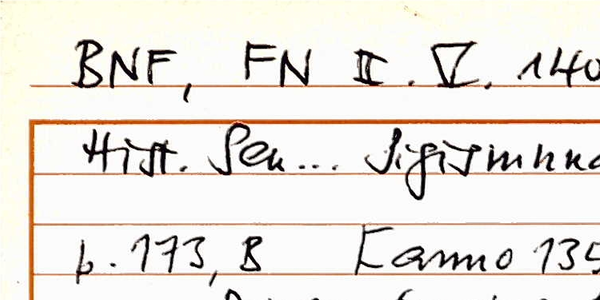 BNF, FN II. V. 140
Hist. Sen... Sigismun
p. 173, B [anno 135